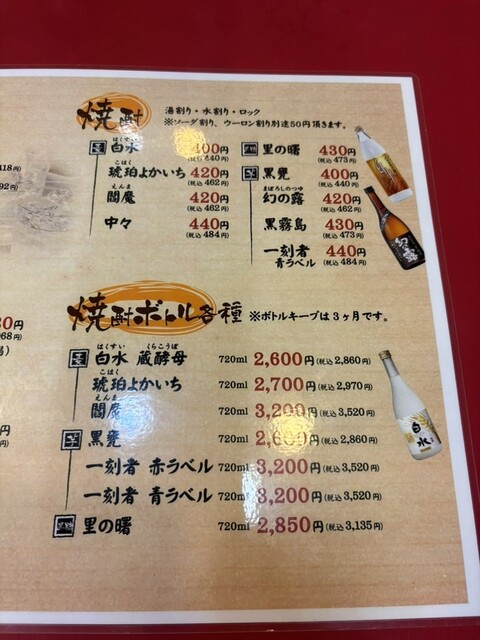 焼酎
湯割り・水割り・ロック
※ソーダ割り、ウーロン割り別途50円頂きます。
麦 はくすい
白水 400円
(税込440円)
こはく
琥珀よかいち 420円
(税込462円)
えんま
閻魔 420円
(税込462円)
中々 440円
(税込484円)
里の曙 430円
(税込473円)
芋 黒甕 400円
(税込440円)
まぼろしのつゆ
幻の露 420円
(税込462円)
黒霧島 430円
(税込473円)
一刻者 440円
青ラベル (税込484円)
焼酎ボトル各種 ※ボトルキープは3ヶ月です。
はくすい くらこうぼ
麦 白水 蔵酵母 720ml 2,600円(税込2,860円)
こはく
琥珀よかいち 720ml 2,700円(税込2,970円)
えんま
閻魔 720ml 3,200円(税込3,520円)
芋 黒甕 720ml 2,600円(税込2,860円)
一刻者 赤ラベル 720ml 3,200円(税込3,520円)
一刻者 青ラベル 720ml 3,200円(税込3,520円)
里の曙 720ml 2,850円(税込3,135円)
幻露
白水